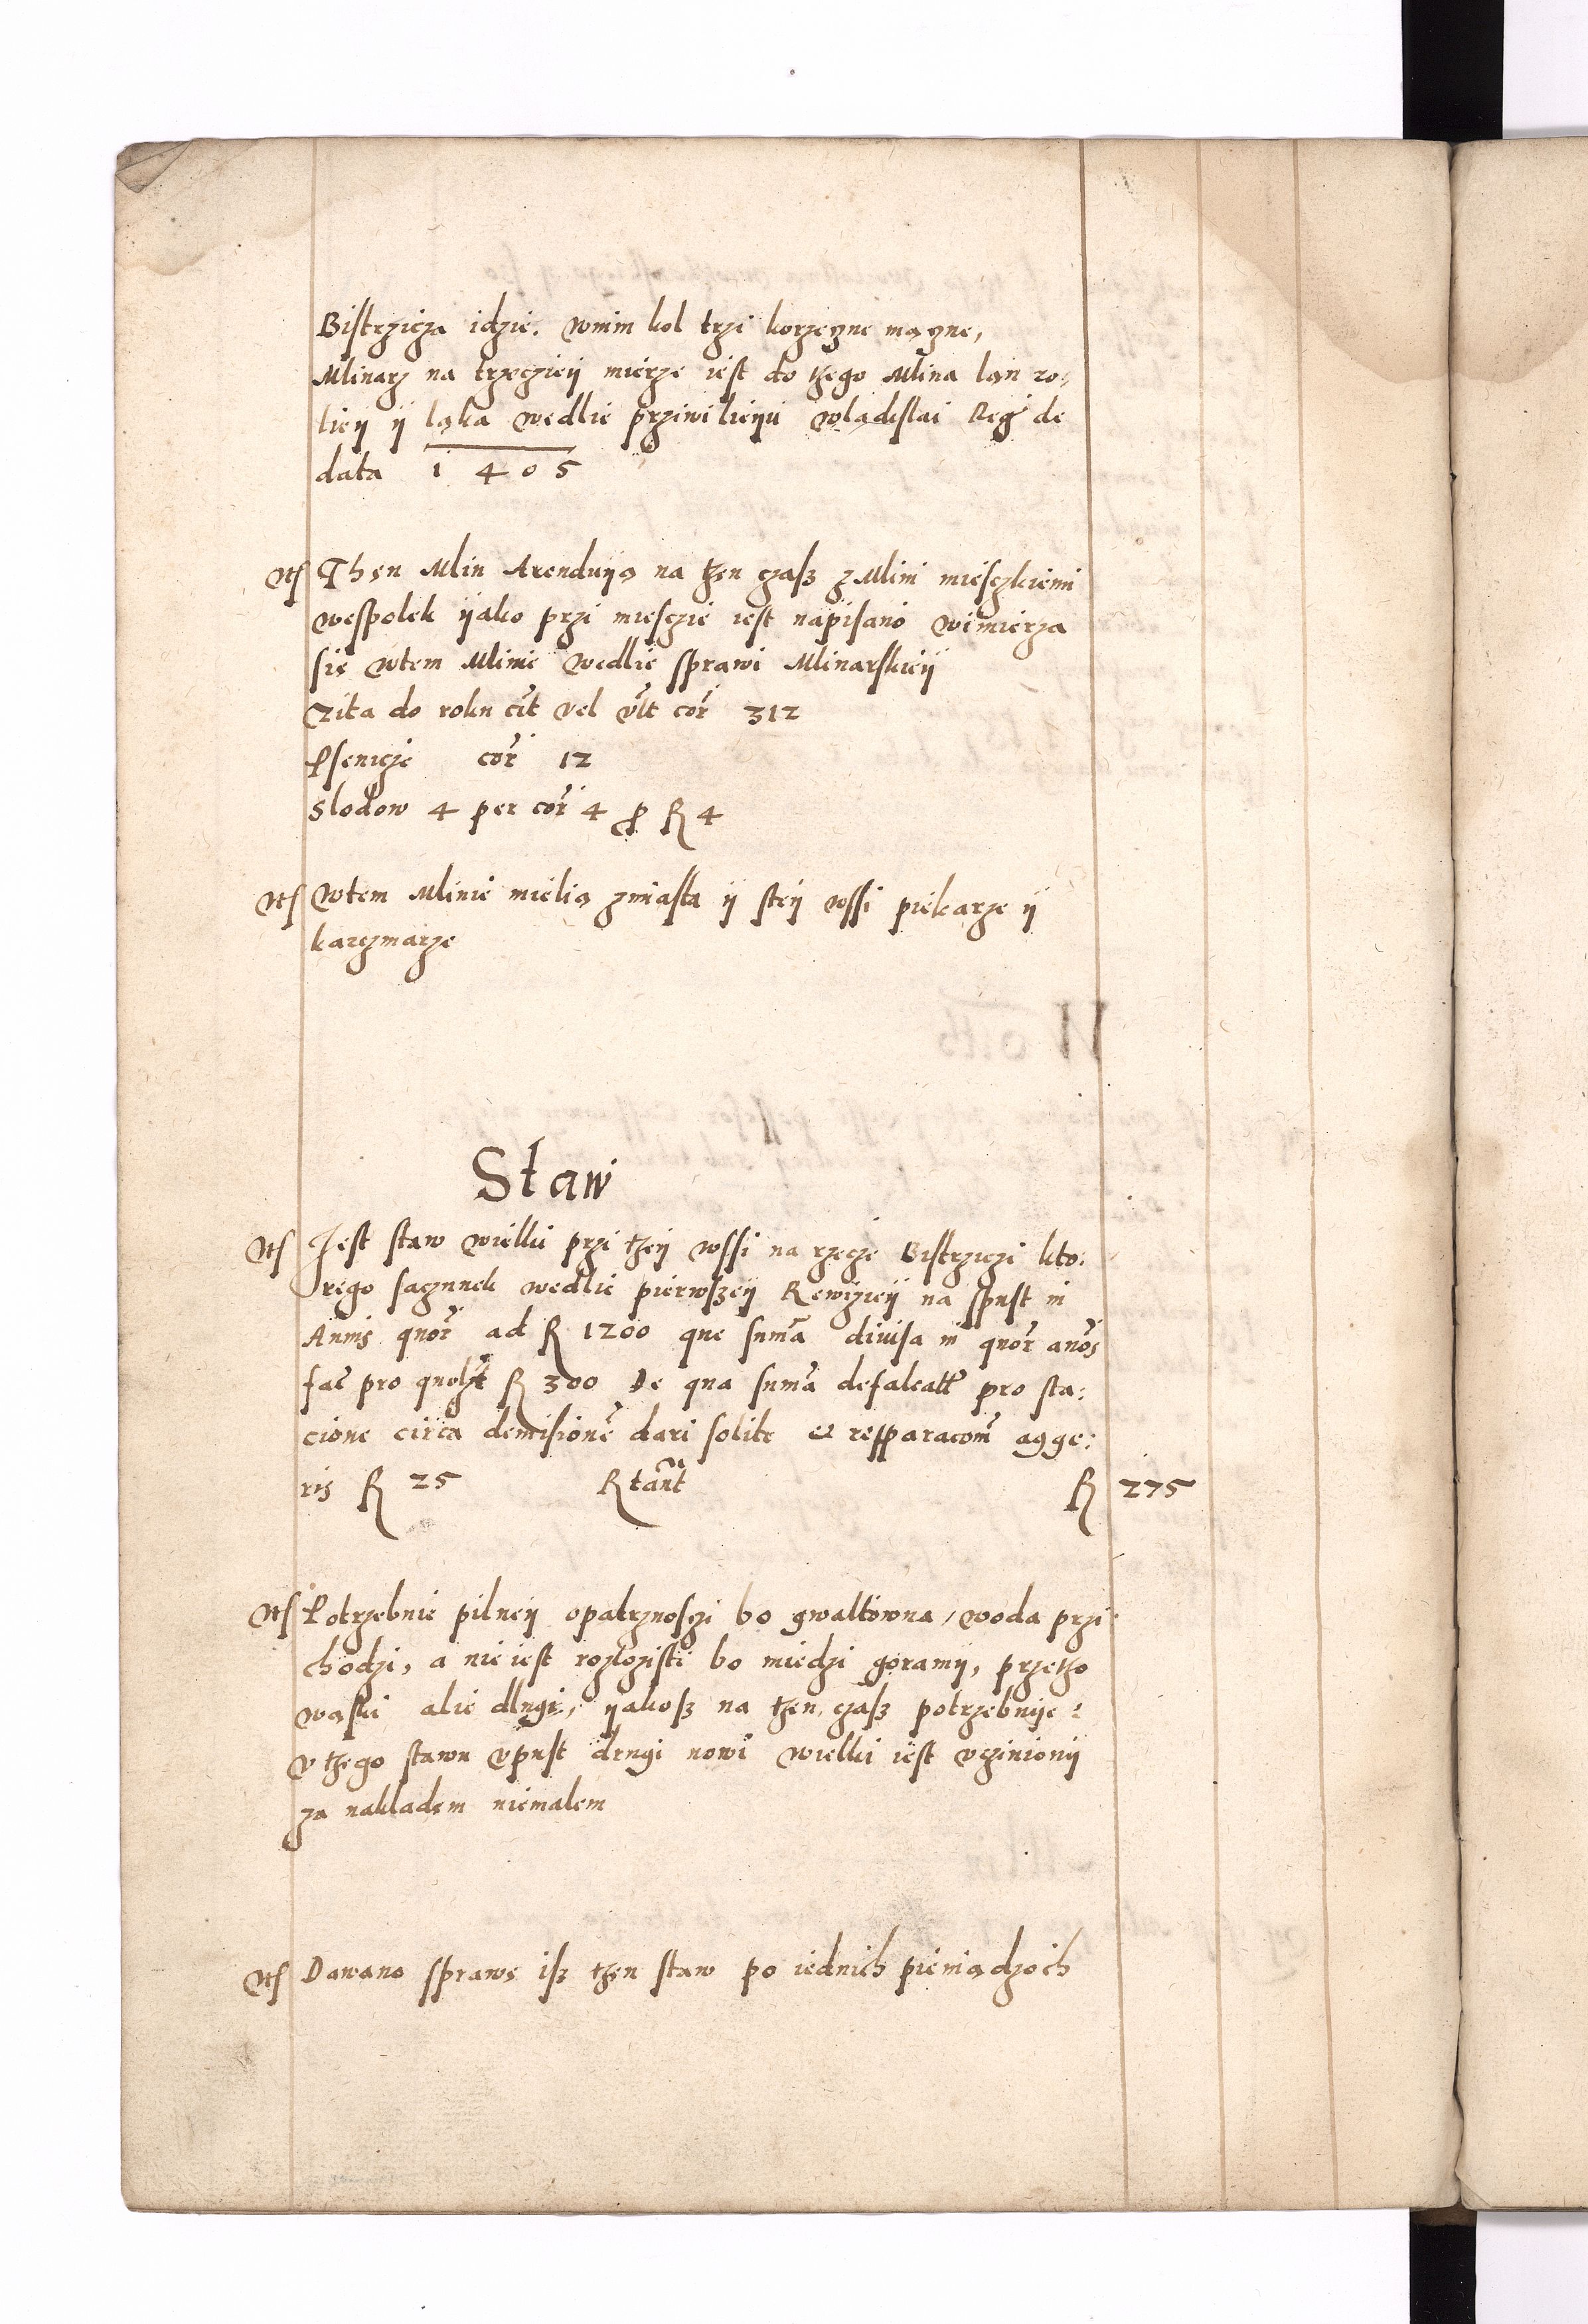 Bistrzicza idzie. wnim kol trzi korzęczne mączne,
Mlinarz na trzecziey mierze iest do tzego Mlina lan ro-
liey y ląka wedlie prziwilieyu wladislai Reg de
data 1405
Then Mlin Arenduyą na tzen czasz zMlini miesczkiemi
wespolek yako przi miesczie iest napisano wimierza
się wtem Mlinie wedlie sprawi Mlinarskiey
Zita do roku cit vel vlt cor 312
Psenicze cor 12
Slodow 4 per cor 4 p R 4
wtem Mlinie mielią zmiasta y stey wssi piekarze y
karczmarze
Staw
Jest staw wielki przi tzey wssi na rzecze Bistrziczi kto:
rego saczunek wedlie pierwszey Rewiziey na spust in
Annis quor ad R 1200 que suma diuisa in quor anos
fac pro quolzt R 300 De qua suma defalcatt pro sta:
cione circa demisione dari solite et resparacom agge:
ris R 25 Rtant R 275
Potrzebnie pilney opatrznosczi bo gwaltowna woda przi
chodzi, a nie iest rozlozisti bo miedzi goramy, przetzo
wąski alie dlugi, yakosz na tzen czasz potrzebuye:
v tzego stawu vpust drugi nowi wielki iest vcziniony
za nakladem niemalem
Dawano sprawę isz tzen staw po iednich pieniądzoch